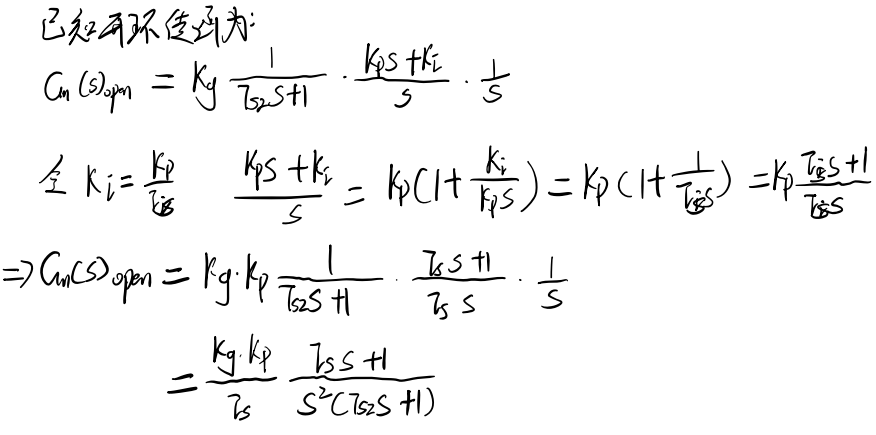 已知开环传递为:
Gₙ(s)open = Kg 1/(τs2S+1) · (KpS+Ki)/S · 1/S
令 Ki = Kp/τis (KpS+Ki)/S = Kp(1+Ki/(KpS)) = Kp(1+1/(τisS)) = Kp (τisS+1)/(τisS)
⇒ Gₙ(S)open = Kg·Kp 1/(τs2S+1) · (τsS+1)/(τsS) · 1/S
= (Kg·Kp)/τs (τsS+1)/(S²(τs2S+1))